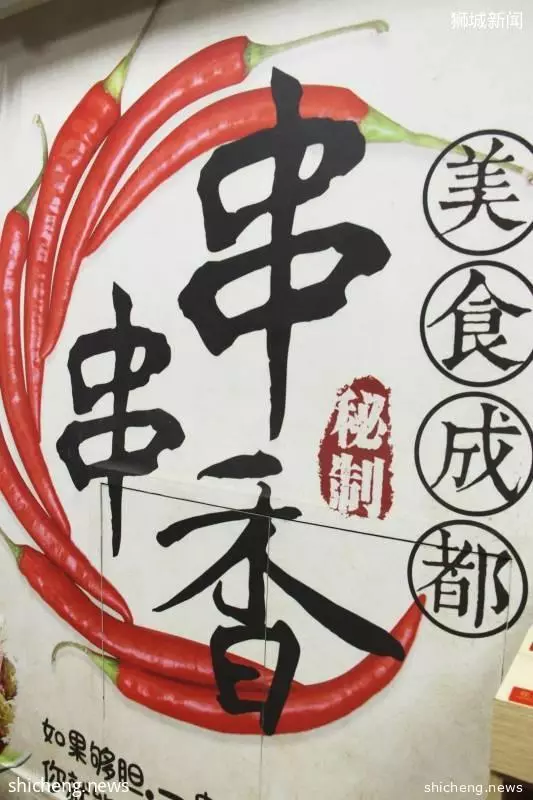 狮城新闻
shicheng.news
串
串
香
秘制
美食成都
如果够胆·
shicheng.news
shicheng.news